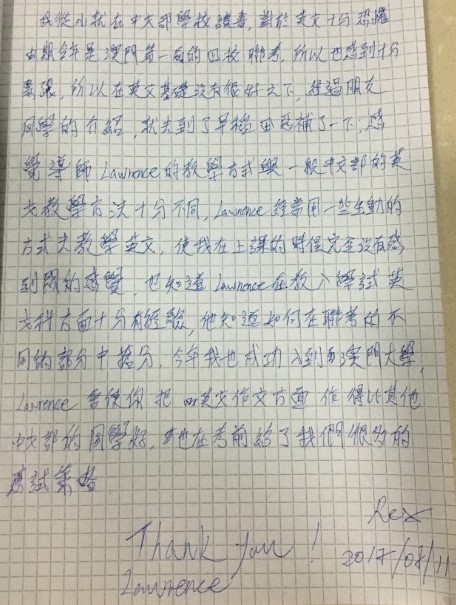 我從小就在中文部學校讀書，對於英文十分恐懼
由期今年是澳門第一屆的四校聯考，所以也感到十分
緊張，所以在英文基礎沒有很好之下，經過朋友
同學的介紹，就去到了早稻田惡補了一下，感
覺導師Lawrence的教學方式與一般中文部的英
文教學方法十分不同，Lawrence經常用一些生動的
方式去教學英文，使我在上課的時侯完全沒有感
到悶的感覺，也知道Lawrence在教入學試英
文科方面十分有經驗，他知道如何在聯考的不
同的部分中搶分，今年我也成功入到澳門大學，
Lawrence會使你把英文作文方面作得比其他
中文部的同學好，他在考前給了我們很多的
應試策略
Rex
Thank you!
2017/08/11
Lawrence